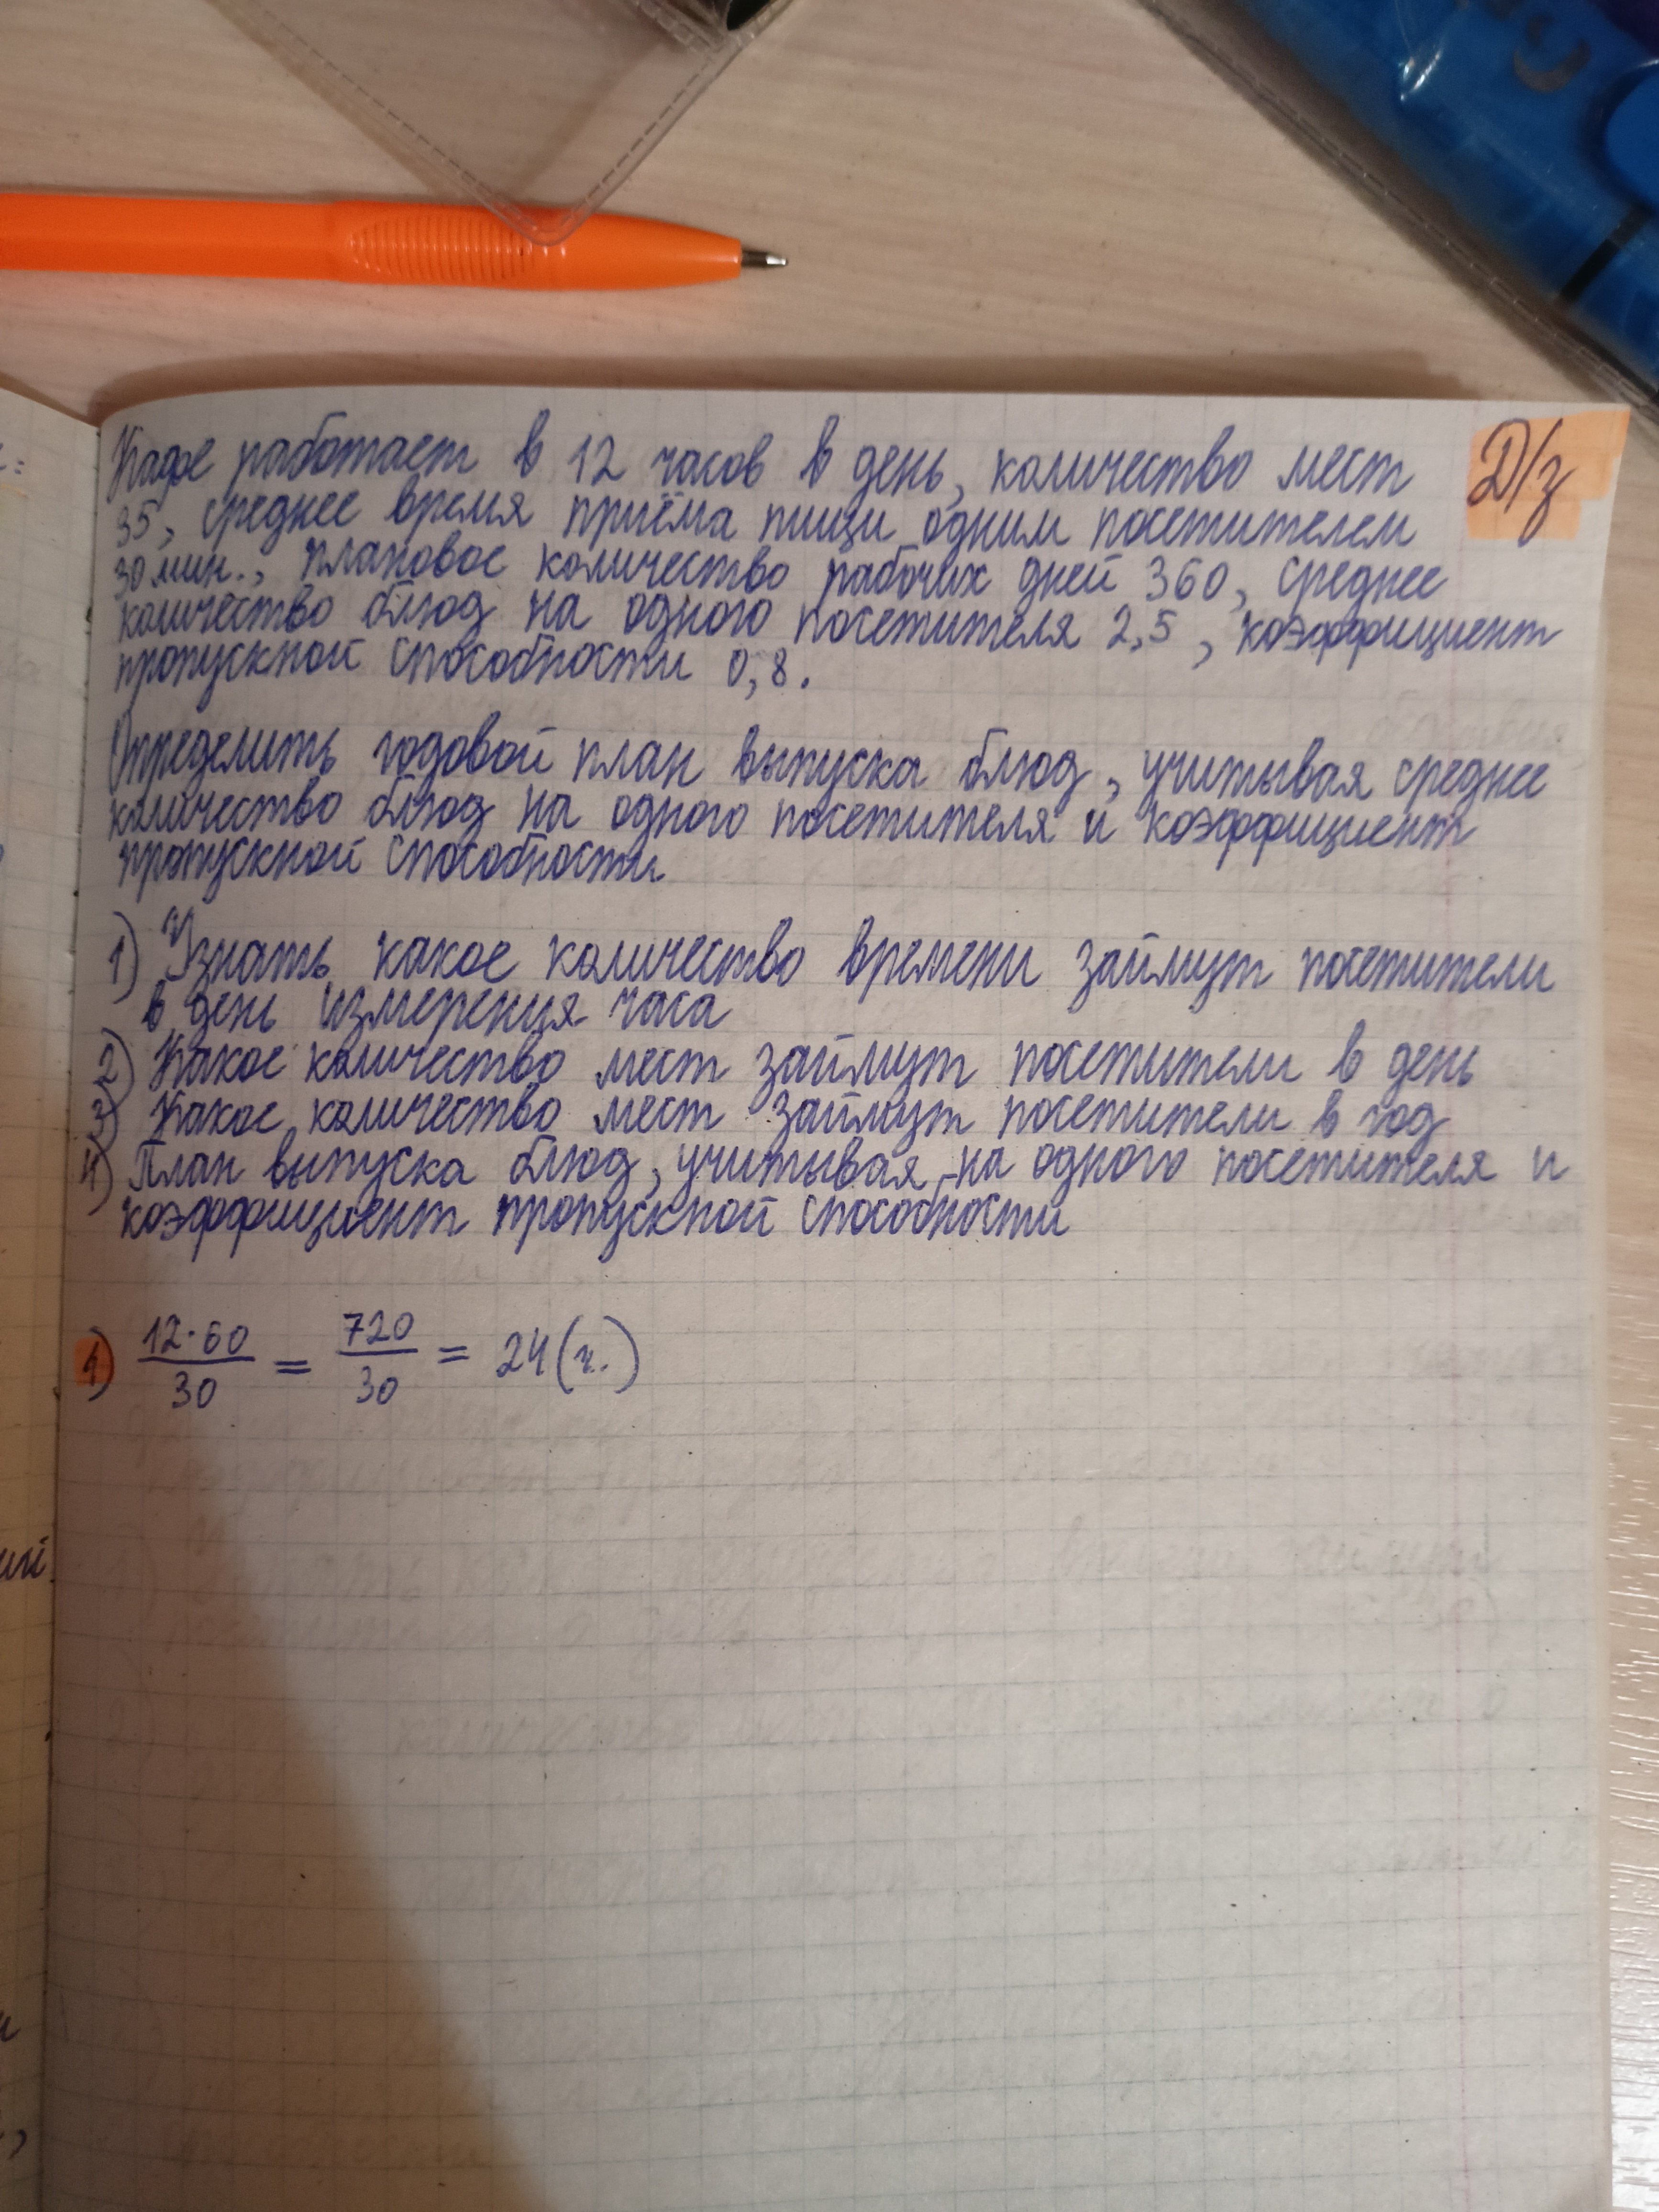 Кафе работает в 12 часов в день, количество мест
Д/з
35, среднее время приёма пищи одним посетителем
30 мин., плановое количество рабочих дней 360, среднее
количество блюд на одного посетителя 2,5, коэффициент
пропускной способности 0,8.
Определить годовой план выпуска блюд, учитывая среднее
количество блюд на одного посетителя и коэффициент
пропускной способности
1) Узнать какое количество времени займут посетители
в день измерения часа
2) Какое количество мест займут посетители в день
3) Какое количество мест займут посетители в год
4) План выпуска блюд, учитывая на одного посетителя и
коэффициент пропускной способности
1) 12·60/30 = 720/30 = 24 (ч.)